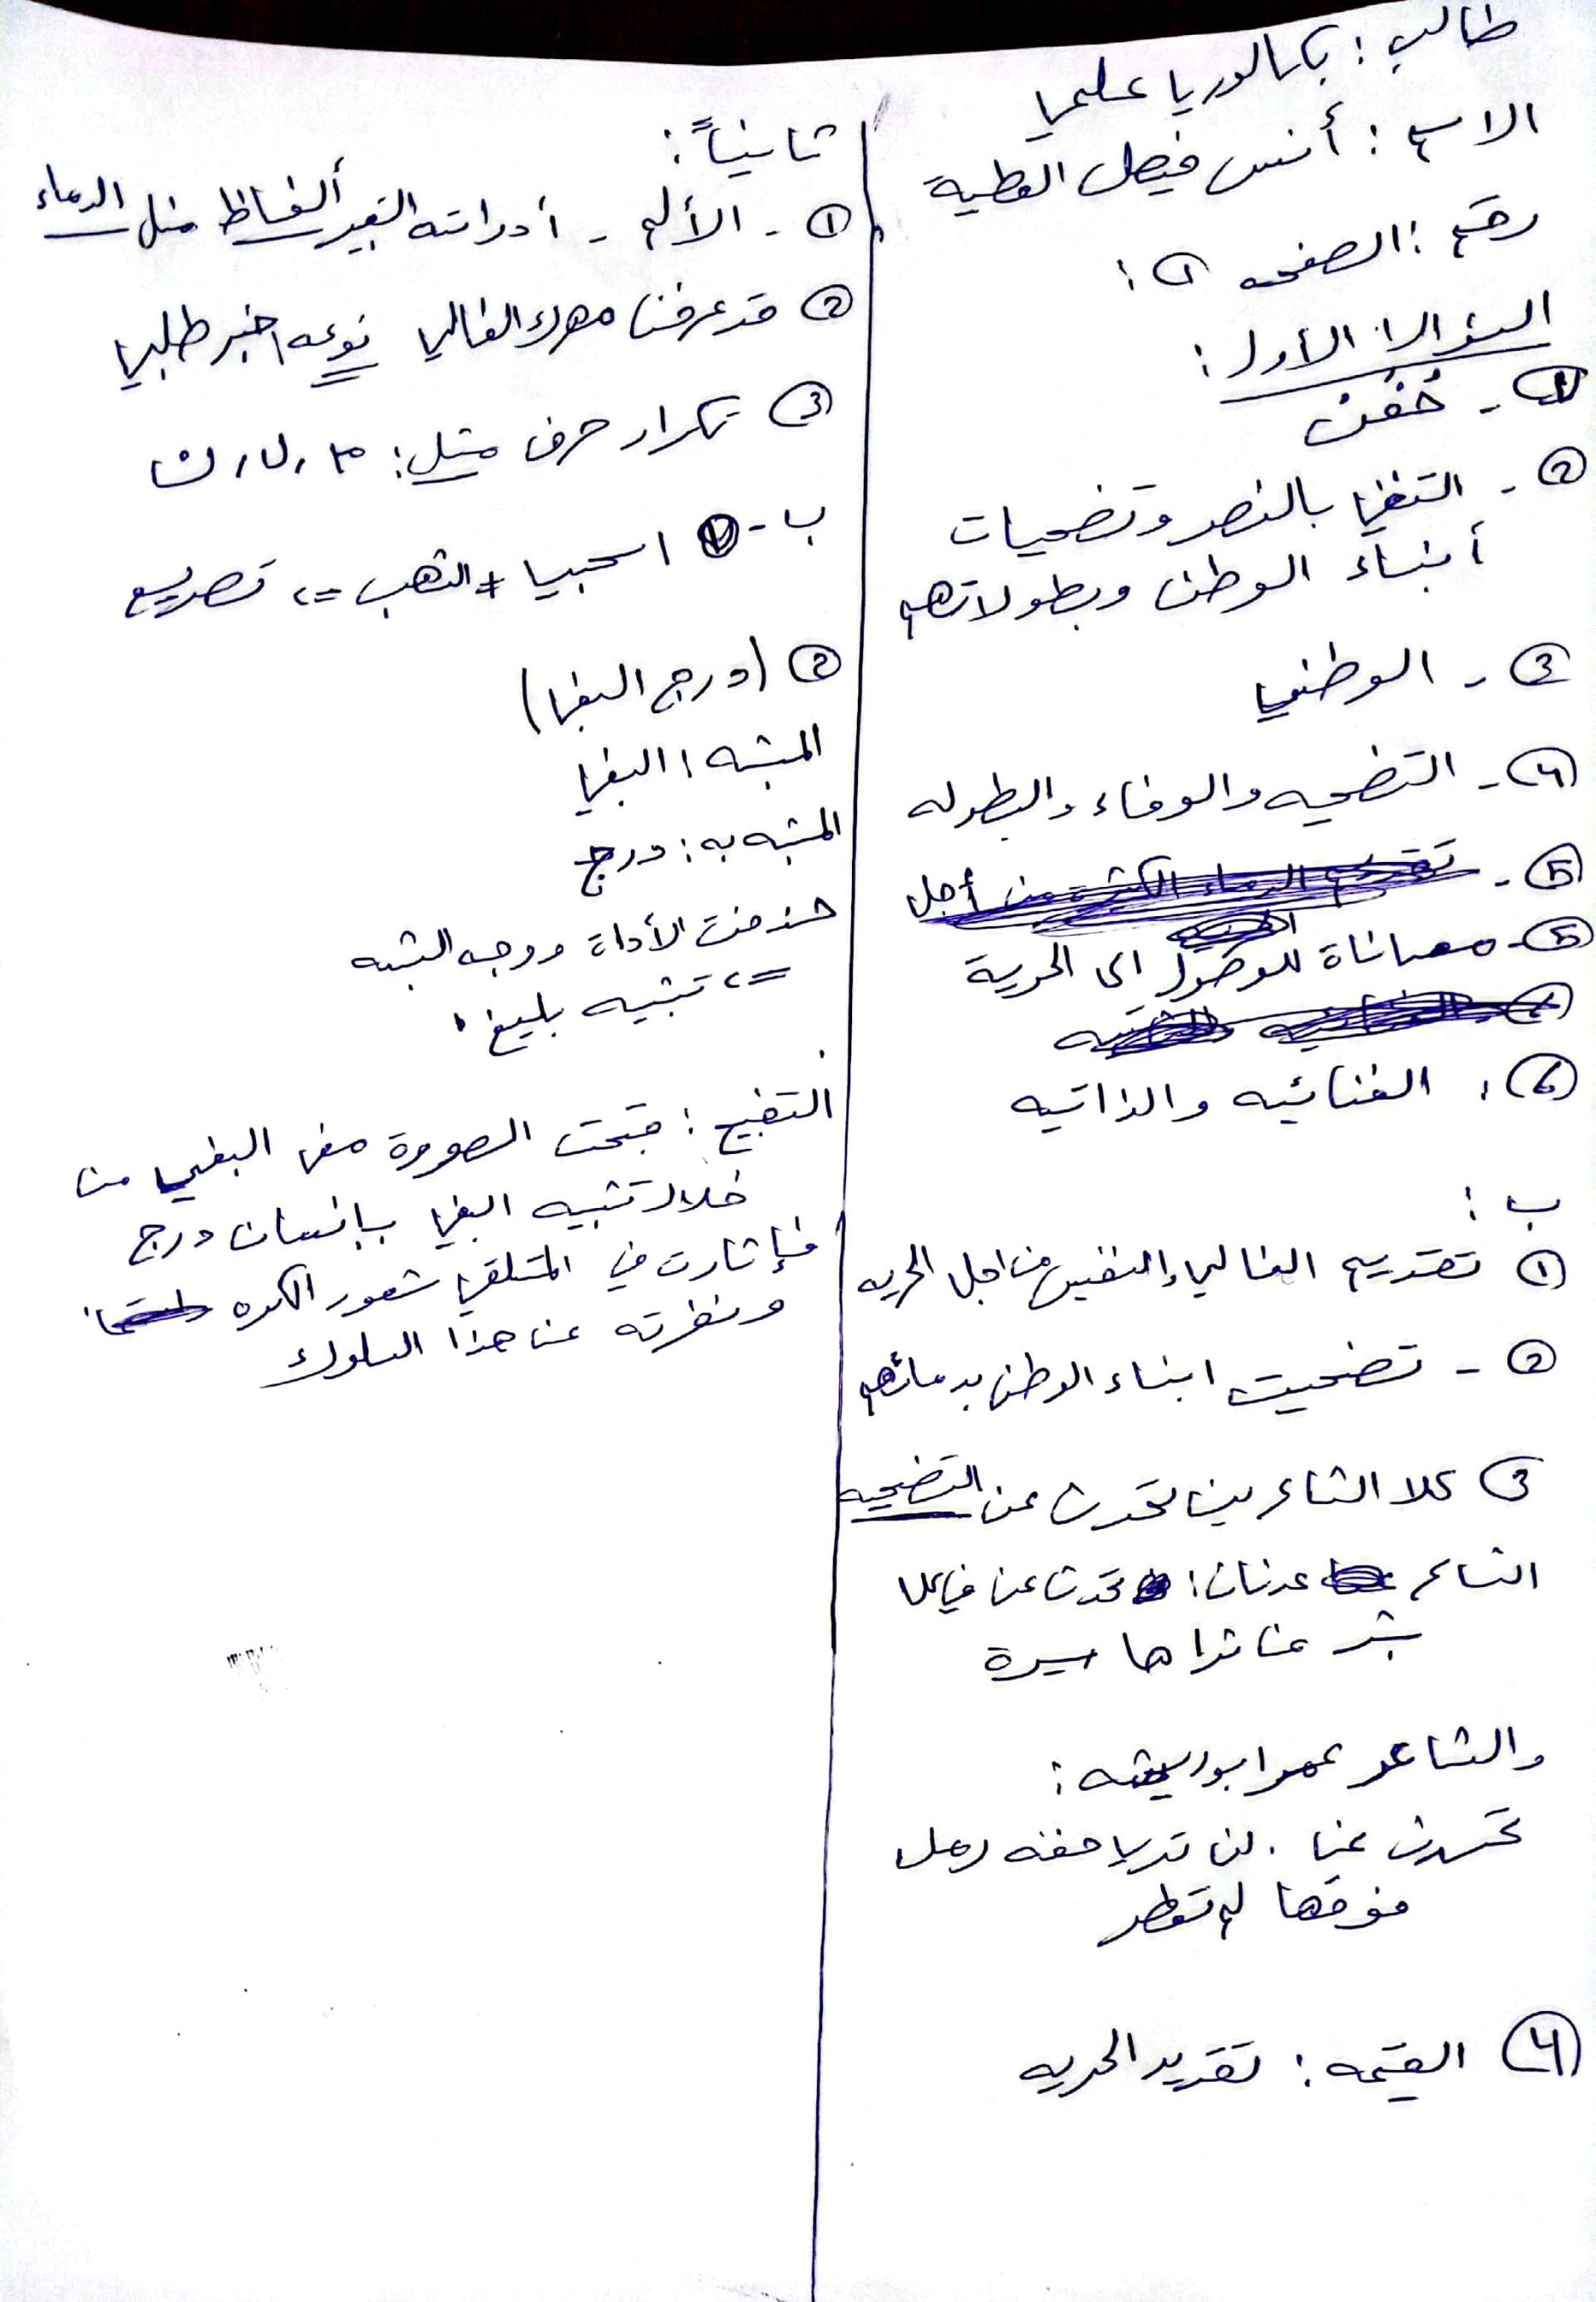 طالب : بكالوريا علمي
الاسم : أنس فيصل العطية
رقم : الصفحه ① :
السؤال الأول :
① - حُفَن
② - التغني بالنصر وتضحيات
أبناء الوطن وبطولاتهم
③ - الوطني
④ - التضحيه والوفاء والبطوله
⑤ -
⑤ - معاناة للوصول الى الحرية
⑥ : الغنائيه والذاتيه
ب :
① تقديم الغالي والنفيس من اجل الحريه
② - تضحيت ابناء الوطن بدمائهم
③ كلا الشاعرين تحدث عن التضحيه
الشاعر عدنان : تحدث عن
عن ثراها سيرة
والشاعر عمر ابو ريشه :
تحدث عنا . لن تري حفنه رمل
فوقها لم تعطر
④ القيمه : تقدير الحريه
ثانياً :
① - الألم - أدواته التعبير ألفاظ مثل الدماء
② قد عرفنا مهرك الغالي نوعه خبر طلبي
③ تكرار حرف مثل : م , ل , ن
ب - ① اسحبي + الشهب => تصريع
② (درج البغي)
المشبه : البغي
المشبه به : درج
حذفت الأداة ووجه الشبه
=> تشبيه بليغ .
التقبيح : قبحت الصورة معنى البغي من
خلال تشبيه البغي بإنسان درج
فإثارت في المتلقي شعور الكره
ونفرته عن هذا السلوك